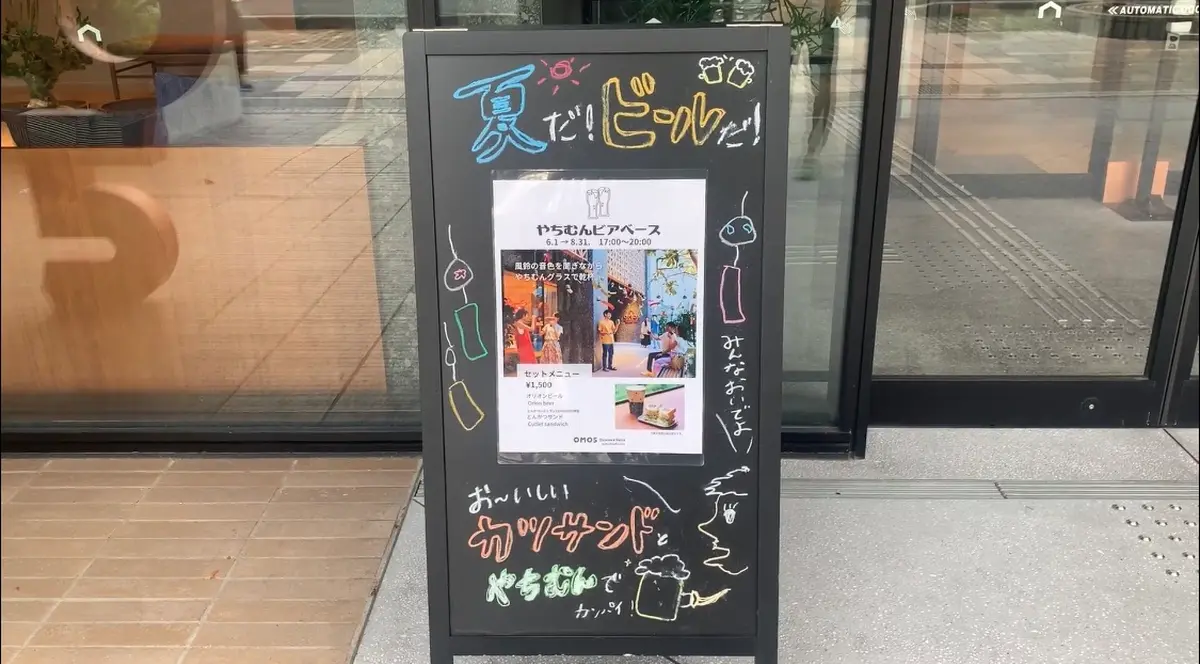 ≪AUTOMATIC
夏だ!ビールだ!
やちむんビアベース
6.1→8.31. 17:00〜20:00
風鈴の音色を聞きながら
やちむんグラスで乾杯
セットメニュー
¥1,500
オリオンビール
Orion beer
とんかつサンド
Cutlet sandwich
OMO5
みんなおいでよ
お〜いしい
カツサンドと
やちむんで
カンパイ!